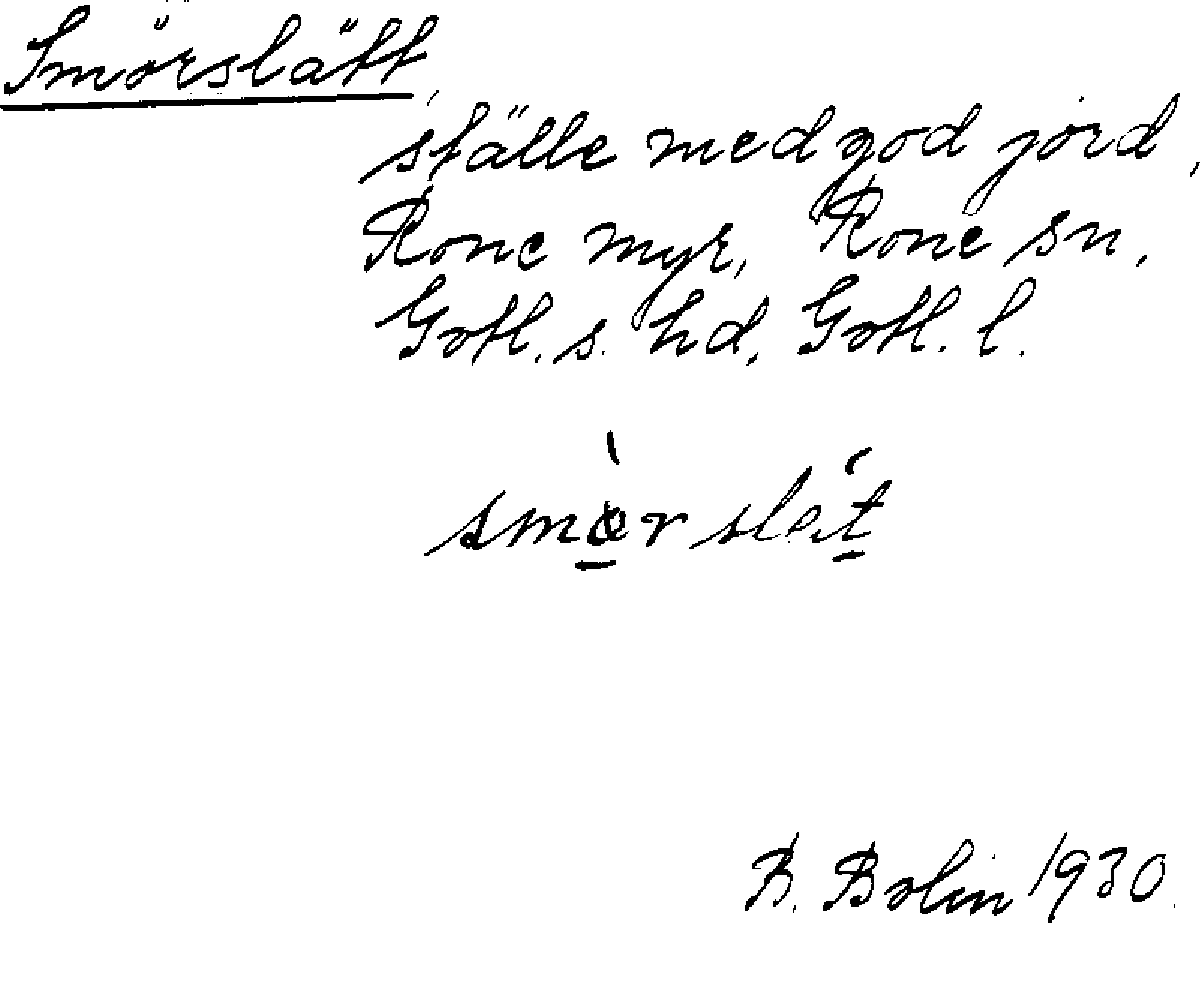 Smörslätt,
ställe med god jord,
Rone myr, Rone sn,
Gotl. s. hd, Gotl. l.
smørslet
B. Bolin 1930.